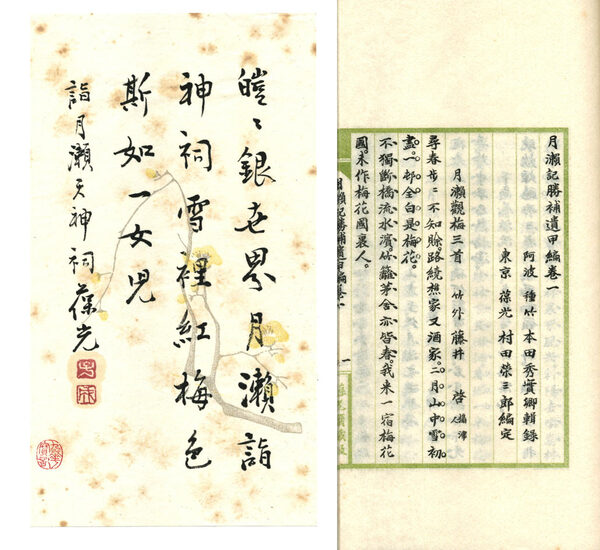 皚〻銀世界月瀬詣
神祠雪裡紅梅色
斯如一女児
詣月瀬天神祠 葆光
月瀬記勝補遺甲編卷一
阿波 種竹 本田秀實卿輯錄
東京 葆光 村田榮三郎編定
月瀬觀梅三首 竹外 藤井 啓 攝津人
尋春步〻不知賖。路繞樵家又酒家。二月山中雪初
盡。一邨全白是梅花。
不獨斷橋流水濱。竹籬茅舍亦皆春。我来一宿梅花
國。未作梅花國裏人。
月瀬記勝補遺甲編卷一
一